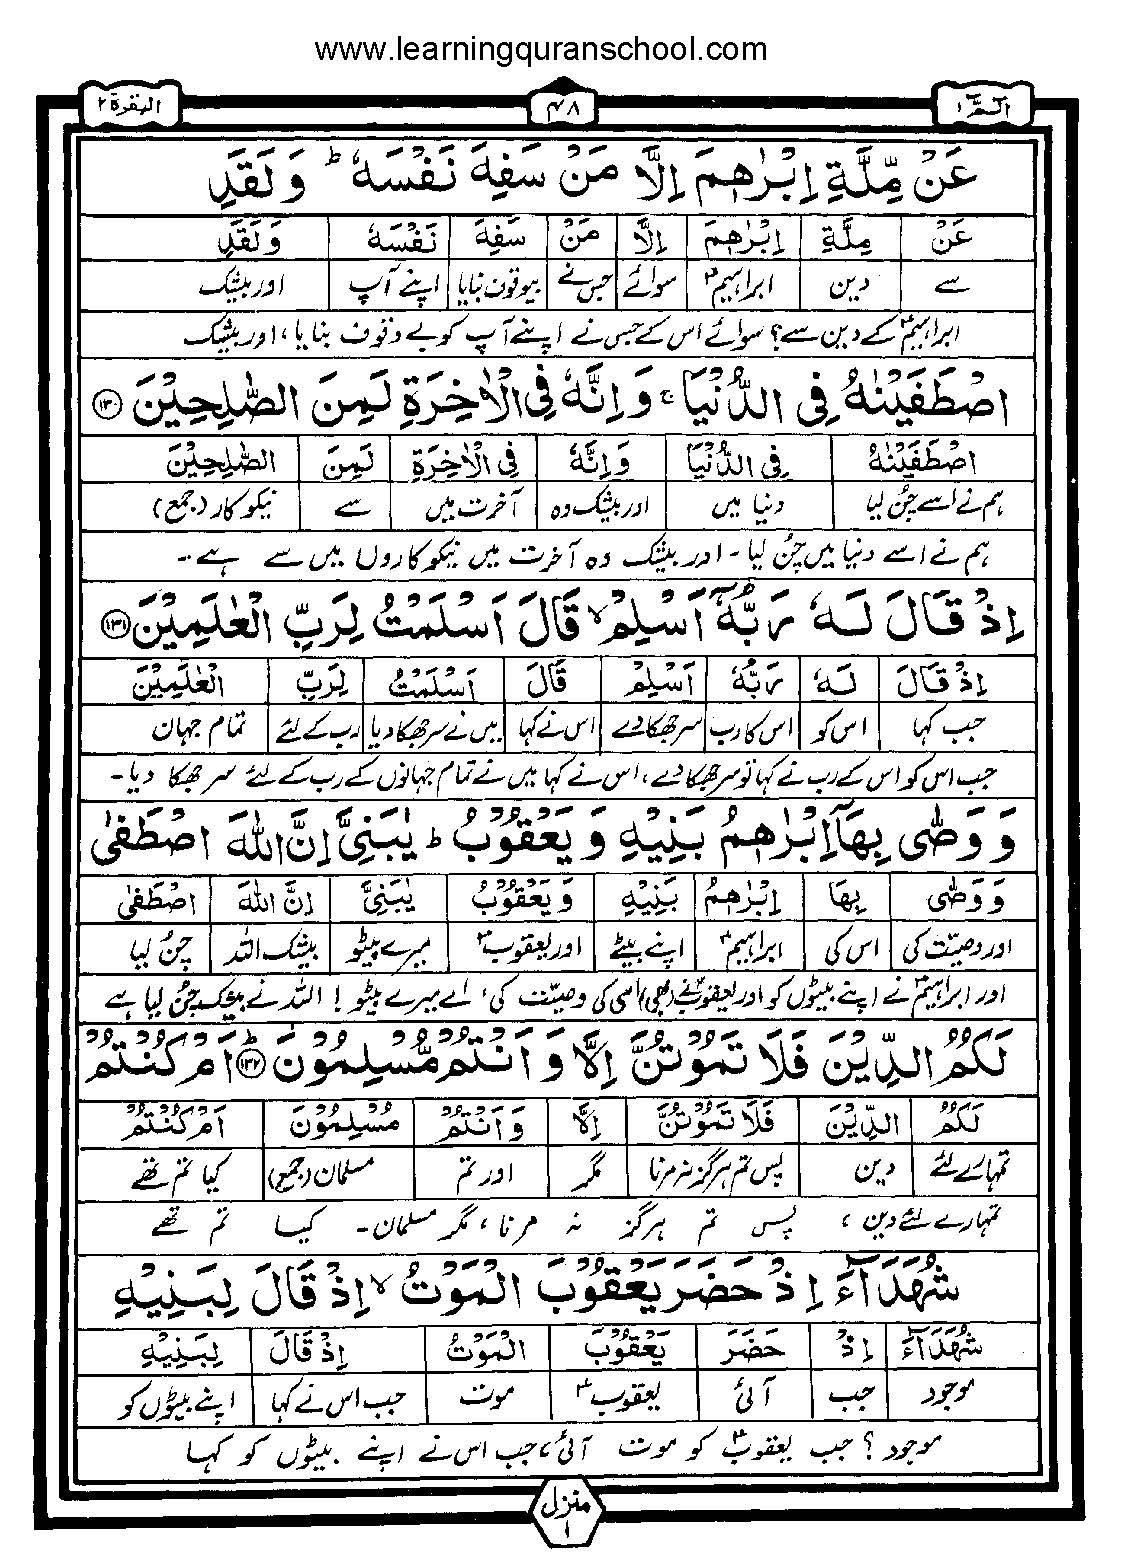 www.learningquranschool.com
الٓمّٓ ۱ ۴۸ البقرة ۲
عَنْ مِّلَّةِ اِبْرٰهٖمَ اِلَّا مَنْ سَفِهَ نَفْسَهٗ ؕ وَلَقَدِ
عَنْ مِلَّةِ اِبْرٰهٖمَ اِلَّا مَنْ سَفِهَ نَفْسَهٗ وَلَقَدِ
سے دین ابراہیمؑ سوائے جس نے بیوقوف بنایا اپنے آپ اور بیشک
ابراہیمؑ کے دین سے؟ سوائے اس کے جس نے اپنے آپ کو بے وقوف بنایا، اور بیشک
اصْطَفَيْنٰهُ فِى الدُّنْيَا ۚ وَاِنَّهٗ فِى الْاٰخِرَةِ لَمِنَ الصّٰلِحِيْنَ ۱۳۰
اصْطَفَيْنٰهُ فِى الدُّنْيَا وَاِنَّهٗ فِى الْاٰخِرَةِ لَمِنَ الصّٰلِحِيْنَ
ہم نے اسے چن لیا دنیا میں اور بیشک وہ آخرت میں سے نیکو کار (جمع)
ہم نے اسے دنیا میں چن لیا۔ اور بیشک وہ آخرت میں نیکو کاروں میں سے ہے۔۔
اِذْ قَالَ لَهٗ رَبُّهٗۤ اَسْلِمْ ۙ قَالَ اَسْلَمْتُ لِرَبِّ الْعٰلَمِيْنَ ۱۳۱
اِذْ قَالَ لَهٗ رَبُّهٗ اَسْلِمْ قَالَ اَسْلَمْتُ لِرَبِّ الْعٰلَمِيْنَ
جب کہا اس کو اس کا رب سر جھکا دے اس نے کہا میں نے سر جھکا دیا رب کے لئے تمام جہان
جب اس کو اس کے رب نے کہا تو سر جھکا دے، اس نے کہا میں نے تمام جہانوں کے رب کے لئے سر جھکا دیا۔
وَوَصّٰى بِهَاۤ اِبْرٰهٖمُ بَنِيْهِ وَيَعْقُوْبُ ؕ يٰبَنِىَّ اِنَّ اللّٰهَ اصْطَفٰى
وَوَصّٰى بِهَا اِبْرٰهٖمُ بَنِيْهِ وَيَعْقُوْبُ يٰبَنِىَّ اِنَّ اللّٰهَ اصْطَفٰى
اور وصیت کی اس کی ابراہیمؑ اپنے بیٹے اور یعقوبؑ میرے بیٹو بیشک اللہ چن لیا
اور ابراہیمؑ نے اپنے بیٹوں کو اور یعقوبؑ نے (بھی) اسی کی وصیت کی، اے میرے بیٹو! اللہ نے بیشک چن لیا ہے
لَكُمُ الدِّيْنَ فَلَا تَمُوْتُنَّ اِلَّا وَاَنْتُمْ مُّسْلِمُوْنَ ؕ ۱۳۲ اَمْ كُنْتُمْ
لَكُمُ الدِّيْنَ فَلَا تَمُوْتُنَّ اِلَّا وَاَنْتُمْ مُسْلِمُوْنَ اَمْ كُنْتُمْ
تمہارے لئے دین پس تم ہرگز نہ مرنا مگر اور تم مسلمان (جمع) کیا تم تھے
تمہارے لئے دین، پس تم ہرگز نہ مرنا، مگر مسلمان۔ کیا تم تھے
شُهَدَآءَ اِذْ حَضَرَ يَعْقُوْبَ الْمَوْتُ ۙ اِذْ قَالَ لِبَنِيْهِ
شُهَدَآءَ اِذْ حَضَرَ يَعْقُوْبَ الْمَوْتُ اِذْ قَالَ لِبَنِيْهِ
موجود جب آئی یعقوبؑ موت جب اس نے کہا اپنے بیٹوں کو
موجود؟ جب یعقوبؑ کو موت آئی، جب اس نے اپنے بیٹوں کو کہا
منزل ۱